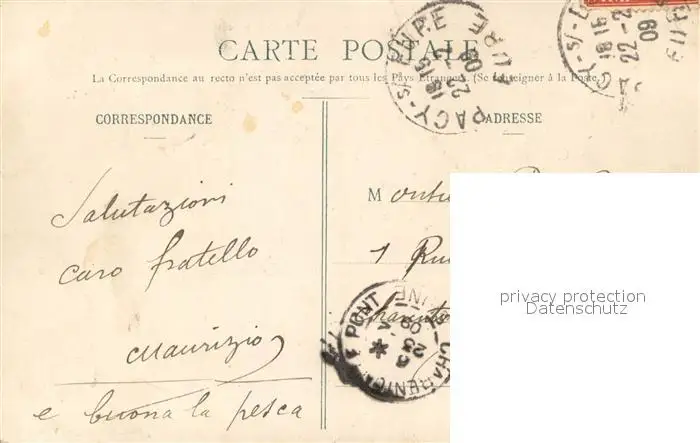 CARTE POSTALE
La Correspondance au recto n'est pas acceptée par tous les Pays Etrangers. (Se renseigner à la Poste.)
CORRESPONDANCE
ADRESSE
PACY-S/-EURE
EURE
18 15
22-2
09
PACY-S/-E
EURE
18 15
22-2
09
Salutazioni
caro fratello
Maurizio
e buona la pesca
M
1 Rue
CHARENTON LE PONT
SEINE
23
09
privacy protection
Datenschutz